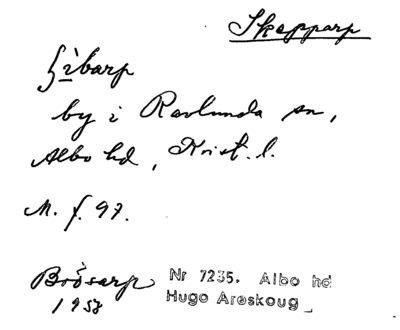 Skepparp
by i Ravlunda sn,
Albo hd, Krist. l.
M. f. 97.
Brösarp
1957
Nr 7235. Albo hd
Hugo Areskoug